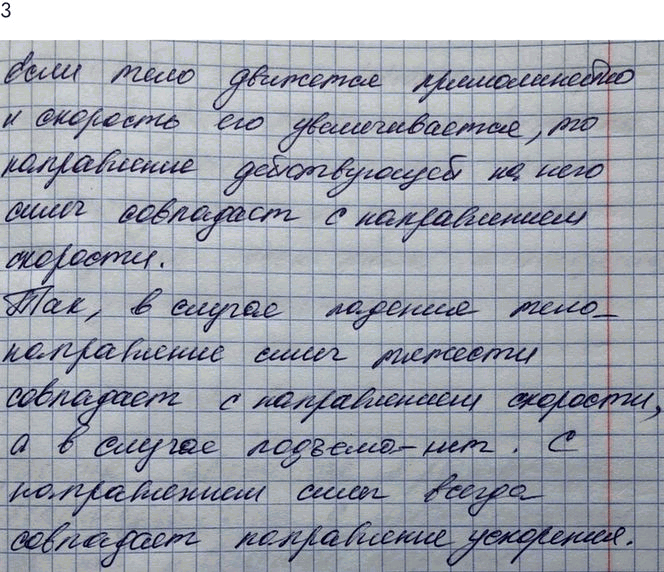 3
Если тело движется прямолинейно
и скорость его увеличивается, то
направление действующей на него
силы совпадает с направлением
скорости.
Так, в случае падения тело-
направление силы тяжести
совпадает с направлением скорости,
а в случае подъёма-нет. С
направлением силы всегда
совпадает направление ускорения.